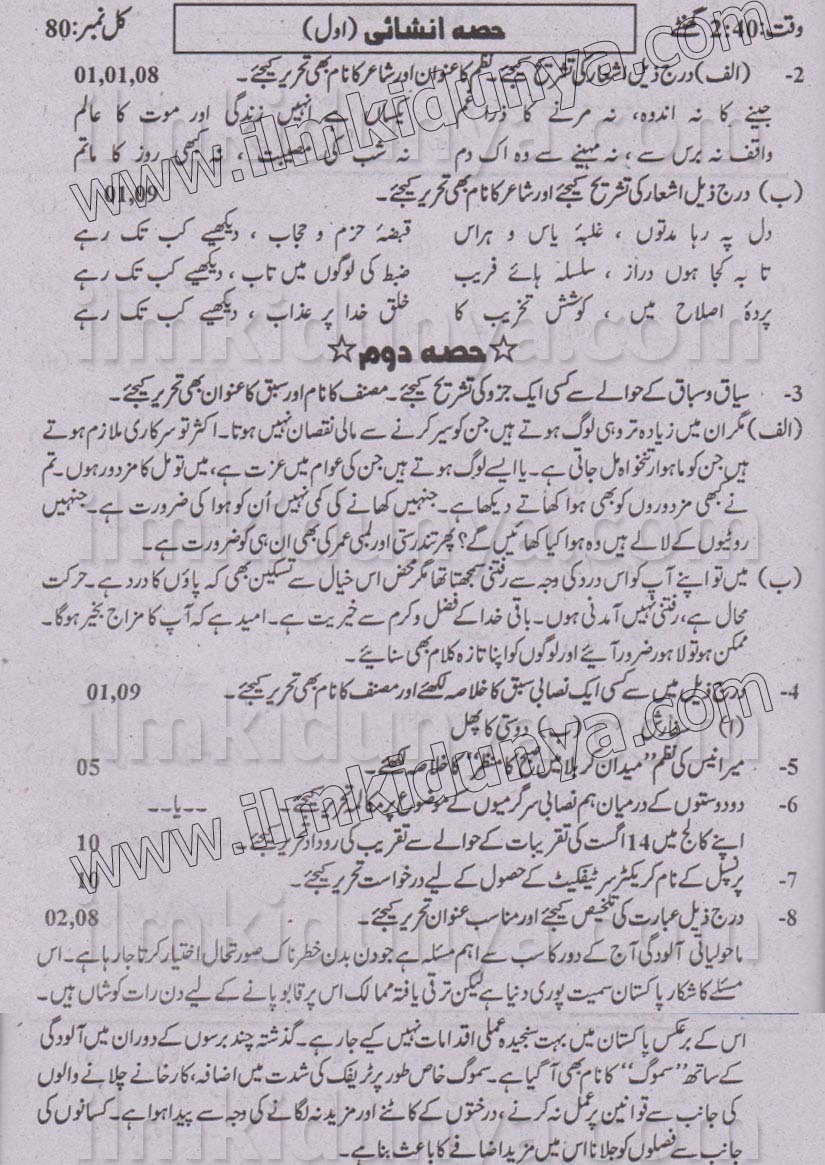 وقت:2:40 گھنٹے
حصہ انشائی (اول)
کل نمبر:80
2- (الف) درج ذیل اشعار کی تشریح کیجئے۔ نظم کا عنوان اور شاعر کا نام بھی تحریر کیجئے۔ 01,01,08
جینے کا نہ اندوہ، نہ مرنے کا ذرا غم یکساں ہے انہیں زندگی اور موت کا عالم
واقف نہ برس سے، نہ مہینے سے وہ اک دم نہ شب کی مصیبت، نہ کبھی روز کا ماتم
(ب) درج ذیل اشعار کی تشریح کیجئے اور شاعر کا نام بھی تحریر کیجئے۔ 01,09
دل پہ رہا مدتوں، غلبۂ یاس و ہراس قبضۂ حزم و حجاب، دیکھیے کب تک رہے
تا بہ کجا ہوں دراز، سلسلہ ہائے فریب ضبط کی لوگوں میں تاب، دیکھیے کب تک رہے
پردۂ اصلاح میں، کوشش تخریب کا خلق خدا پر عذاب، دیکھیے کب تک رہے
☆حصہ دوم☆
3- سیاق و سباق کے حوالے سے کسی ایک جزو کی تشریح کیجئے۔ مصنف کا نام اور سبق کا عنوان بھی تحریر کیجئے۔
(الف) مگر ان میں زیادہ تر وہی لوگ ہوتے ہیں جن کو سیر کرنے سے مالی نقصان نہیں ہوتا۔ اکثر تو سرکاری ملازم ہوتے
ہیں جن کو ماہوار تنخواہ مل جاتی ہے۔ یا ایسے لوگ ہوتے ہیں جن کی عوام میں عزت ہے، میں تو مل کا مزدور ہوں۔ تم
نے کبھی مزدوروں کو بھی ہوا کھاتے دیکھا ہے۔ جنہیں کھانے کی کمی نہیں اُن کو ہوا کی ضرورت ہے۔ جنہیں
روٹیوں کے لالے ہیں وہ ہوا کیا کھائیں گے؟ پھر تندرستی اور لمبی عمر کی بھی ان ہی کو ضرورت ہے۔
(ب) میں تو اپنے آپ کو اس درد کی وجہ سے رفتنی سمجھتا تھا مگر محض اس خیال سے تسکین بھی کہ پاؤں کا درد ہے۔ حرکت
محال ہے، رفتنی نہیں آمدنی ہوں۔ باقی خدا کے فضل و کرم سے خیریت ہے۔ امید ہے کہ آپ کا مزاج بخیر ہوگا۔
ممکن ہو تو لاہور ضرور آئیے اور لوگوں کو اپنا تازہ کلام بھی سنائیے۔
4- درج ذیل میں سے کسی ایک نصابی سبق کا خلاصہ لکھئے اور مصنف کا نام بھی تحریر کیجئے۔ 01,09
(ا) سفارش (ب) دوستی کا پھل
5- میر انیس کی نظم ”میدان کربلا میں صبح کا منظر“ کا خلاصہ لکھئے۔ 05
6- دو دوستوں کے درمیان ہم نصابی سرگرمیوں کے موضوع پر مکالمہ تحریر کیجئے۔ --یا--
اپنے کالج میں 14 اگست کی تقریبات کے حوالے سے تقریب کی روداد تحریر کیجئے۔ 10
7- پرنسپل کے نام کریکٹر سرٹیفکیٹ کے حصول کے لیے درخواست تحریر کیجئے۔ 10
8- درج ذیل عبارت کی تلخیص کیجئے اور مناسب عنوان تحریر کیجئے۔ 02,08
ماحولیاتی آلودگی آج کے دور کا سب سے اہم مسئلہ ہے جو دن بدن خطرناک صورتحال اختیار کرتا جا رہا ہے۔ اس
مسئلے کا شکار پاکستان سمیت پوری دنیا ہے لیکن ترقی یافتہ ممالک اس پر قابو پانے کے لیے دن رات کوشاں ہیں۔
اس کے برعکس پاکستان میں بہت سنجیدہ عملی اقدامات نہیں کیے جا رہے۔ گذشتہ چند برسوں کے دوران میں آلودگی
کے ساتھ ”سموگ“ کا نام بھی آ گیا ہے۔ سموگ خاص طور پر ٹریفک کی شدت میں اضافہ، کارخانے چلانے والوں
کی جانب سے قوانین پر عمل نہ کرنے، درختوں کے کاٹنے اور مزید نہ لگانے کی وجہ سے پیدا ہوا ہے۔ کسانوں کی
جانب سے فصلوں کو جلانا اس میں مزید اضافے کا باعث بنا ہے۔
www.ilmkidunya.com
www.ilmkidunya.com
ilmkidunya.com
ilmkidunya.com
ilmkidunya.com
ilmkidunya.com
ilmkidunya.com
ilmkidunya.com